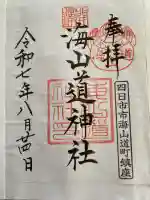 奉拝
四日市市海山道町鎮座
海山道神社
令和七年八月廿四日